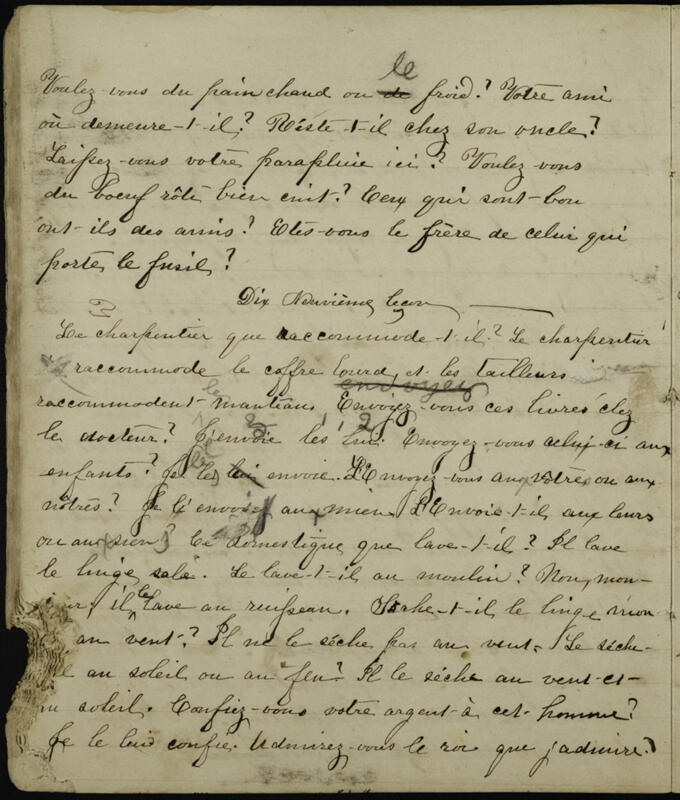 le
Voulez-vous du pain chaud ou de froid? Votre ami
où demeure-t-il? Réste-t-il chez son oncle?
Laissez-vous votre parapluie ici? Voulez-vous
du boeuf rôti bien cuit? Ceux qui sont-bon
ont-ils des amis? Etes-vous le frère de celui qui
porte le fusil?
Dix Neuvième leçon
Le charpentier que raccommode-t-il? Le charpentier
raccommode le coffre lourd, et les tailleurs
raccommodent manteaux Envoyez-vous ces livres chez
le docteur? J'envoie les lui. Envoyez-vous celui-ci aux
enfants? Je les lui envoie. L'Envoyez-vous aux vôtres ou aux
nôtres? Je l'envoie au mien. L'Envoie-t-il aux leurs
ou au sien? Ce domestique que lave-t-il? Il lave
le linge sale. Le lave-t-il au moulin? Non, mon-
il le lave au ruisseau. Séche-t-il le linge mon
au vent? Il ne le sèche pas au vent. Le séche-
au soleil ou au feu? Il le séche au vent-et-
soleil. Confiez-vous votre argent-à cet homme?
Je le lui confie. Admirez-vous le roi que j'admire?